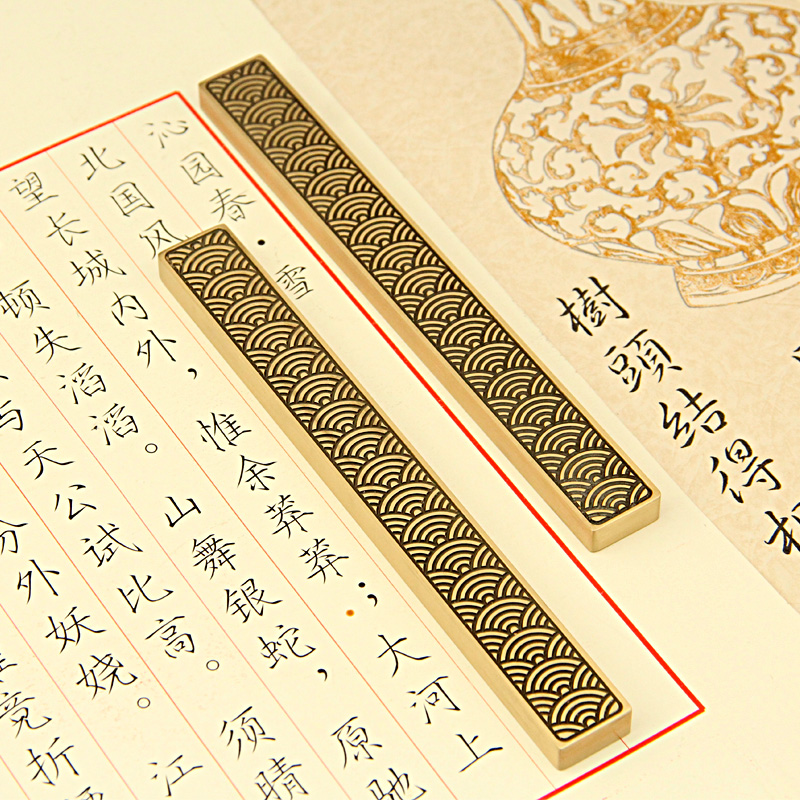 樹頭結得
沁园春·雪
北国风
望长城内外，惟余莽莽；大河上
顿失滔滔。山舞银蛇，原驰
与天公试比高。须晴
分外妖娆。江
竞折